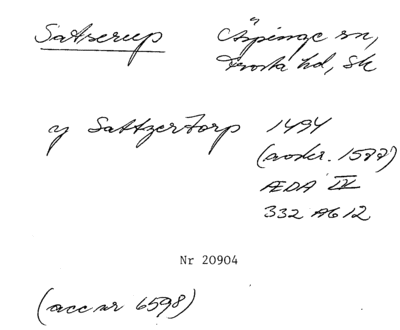 Satserup Äspinge sn,
Frosta hd, Sk
y Sattzertorp 1494
(avskr. 1577)
ÆDA IX
332 A6 12
Nr 20904
(acc nr 6598)